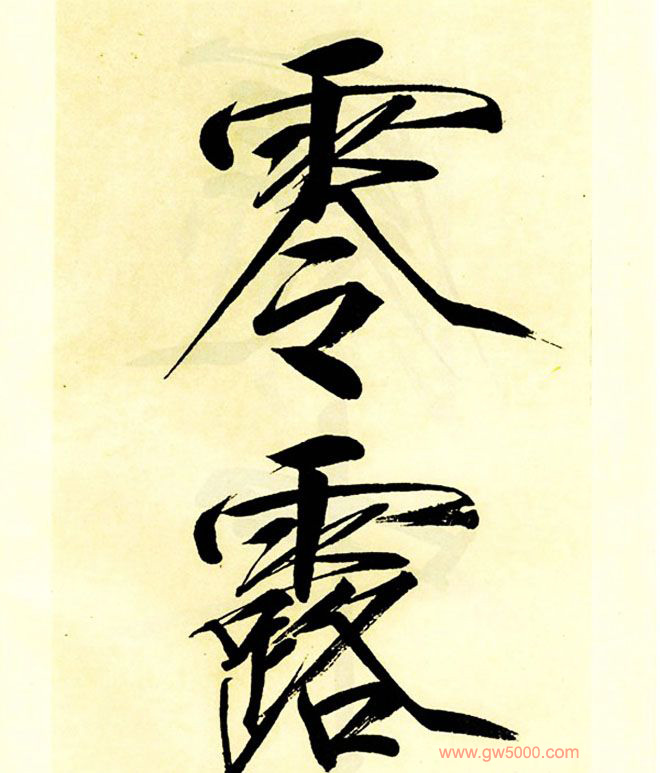 零
露
www.gw5000.com